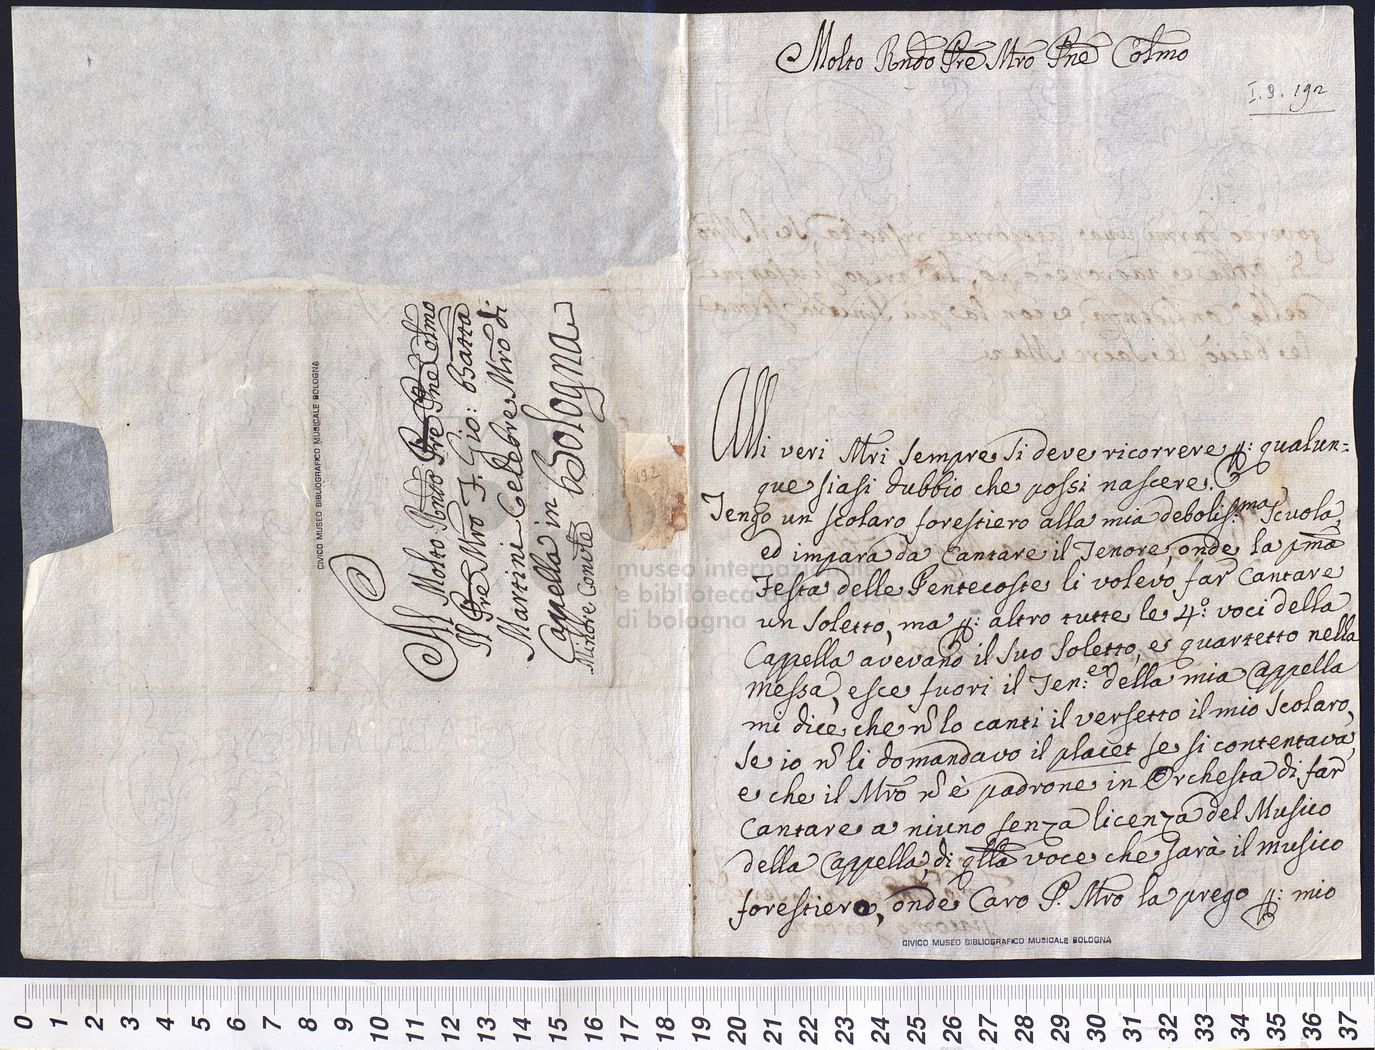 Molto Rndo Pre Mro Pne Colmo
I.9.192
Alli veri Mri sempre si deve ricorrere p: qualun=
que siasi dubbio che possi nascere.
Tengo un scolaro forestiero alla mia debolis.ma Scuola
ed impara da Cantare il Tenore, onde la pma
Festa delle Pentecoste li volevo far Cantare
un Soletto, ma p: altro tutte le 4.o voci della
Cappella avevano il suo Soletto, e quartetto nella
messa, esce fuori il Ten:e della mia Cappella
mi dice che ñ lo canti il versetto il mio Scolaro,
se io ñ li domandavo il placet se si contentava,
e che il Mro ñ è padrone in Orchesta di far
Cantare a niuno senza licenza del Musico
della Cappella, di qlla voce che sarà il musico
forestiero, onde Caro P. Mro la prego p: mio
CIVICO MUSEO BIBLIOGRAFICO MUSICALE BOLOGNA
Al Molto Rndo Pre Pne Colmo
Il Pre Mro F. Gio: Batta
Martini Celebre Mro di
Cappella in Bologna
Minore Convte
192
CIVICO MUSEO BIBLIOGRAFICO MUSICALE BOLOGNA
museo internazionale
e biblioteca della musica
di bologna
0 1 2 3 4 5 6 7 8 9 10 11 12 13 14 15 16 17 18 19 20 21 22 23 24 25 26 27 28 29 30 31 32 33 34 35 36 37